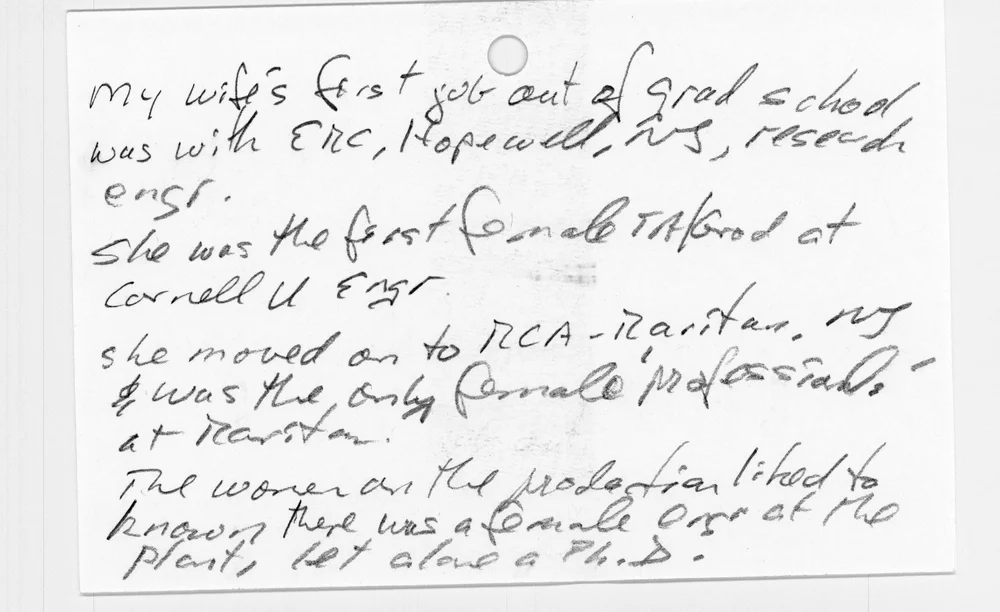 My wife's first job out of grad school
was with ERC, Hopewell, NJ, research
engr.
She was the first female TA/Grad at
Cornell U Engr.
she moved on to RCA-Raritan, NJ
& was the only female 'professional'
at Raritan.
The women on the production liked to
known there was a female engr at the
plant, let alone a Ph.D.